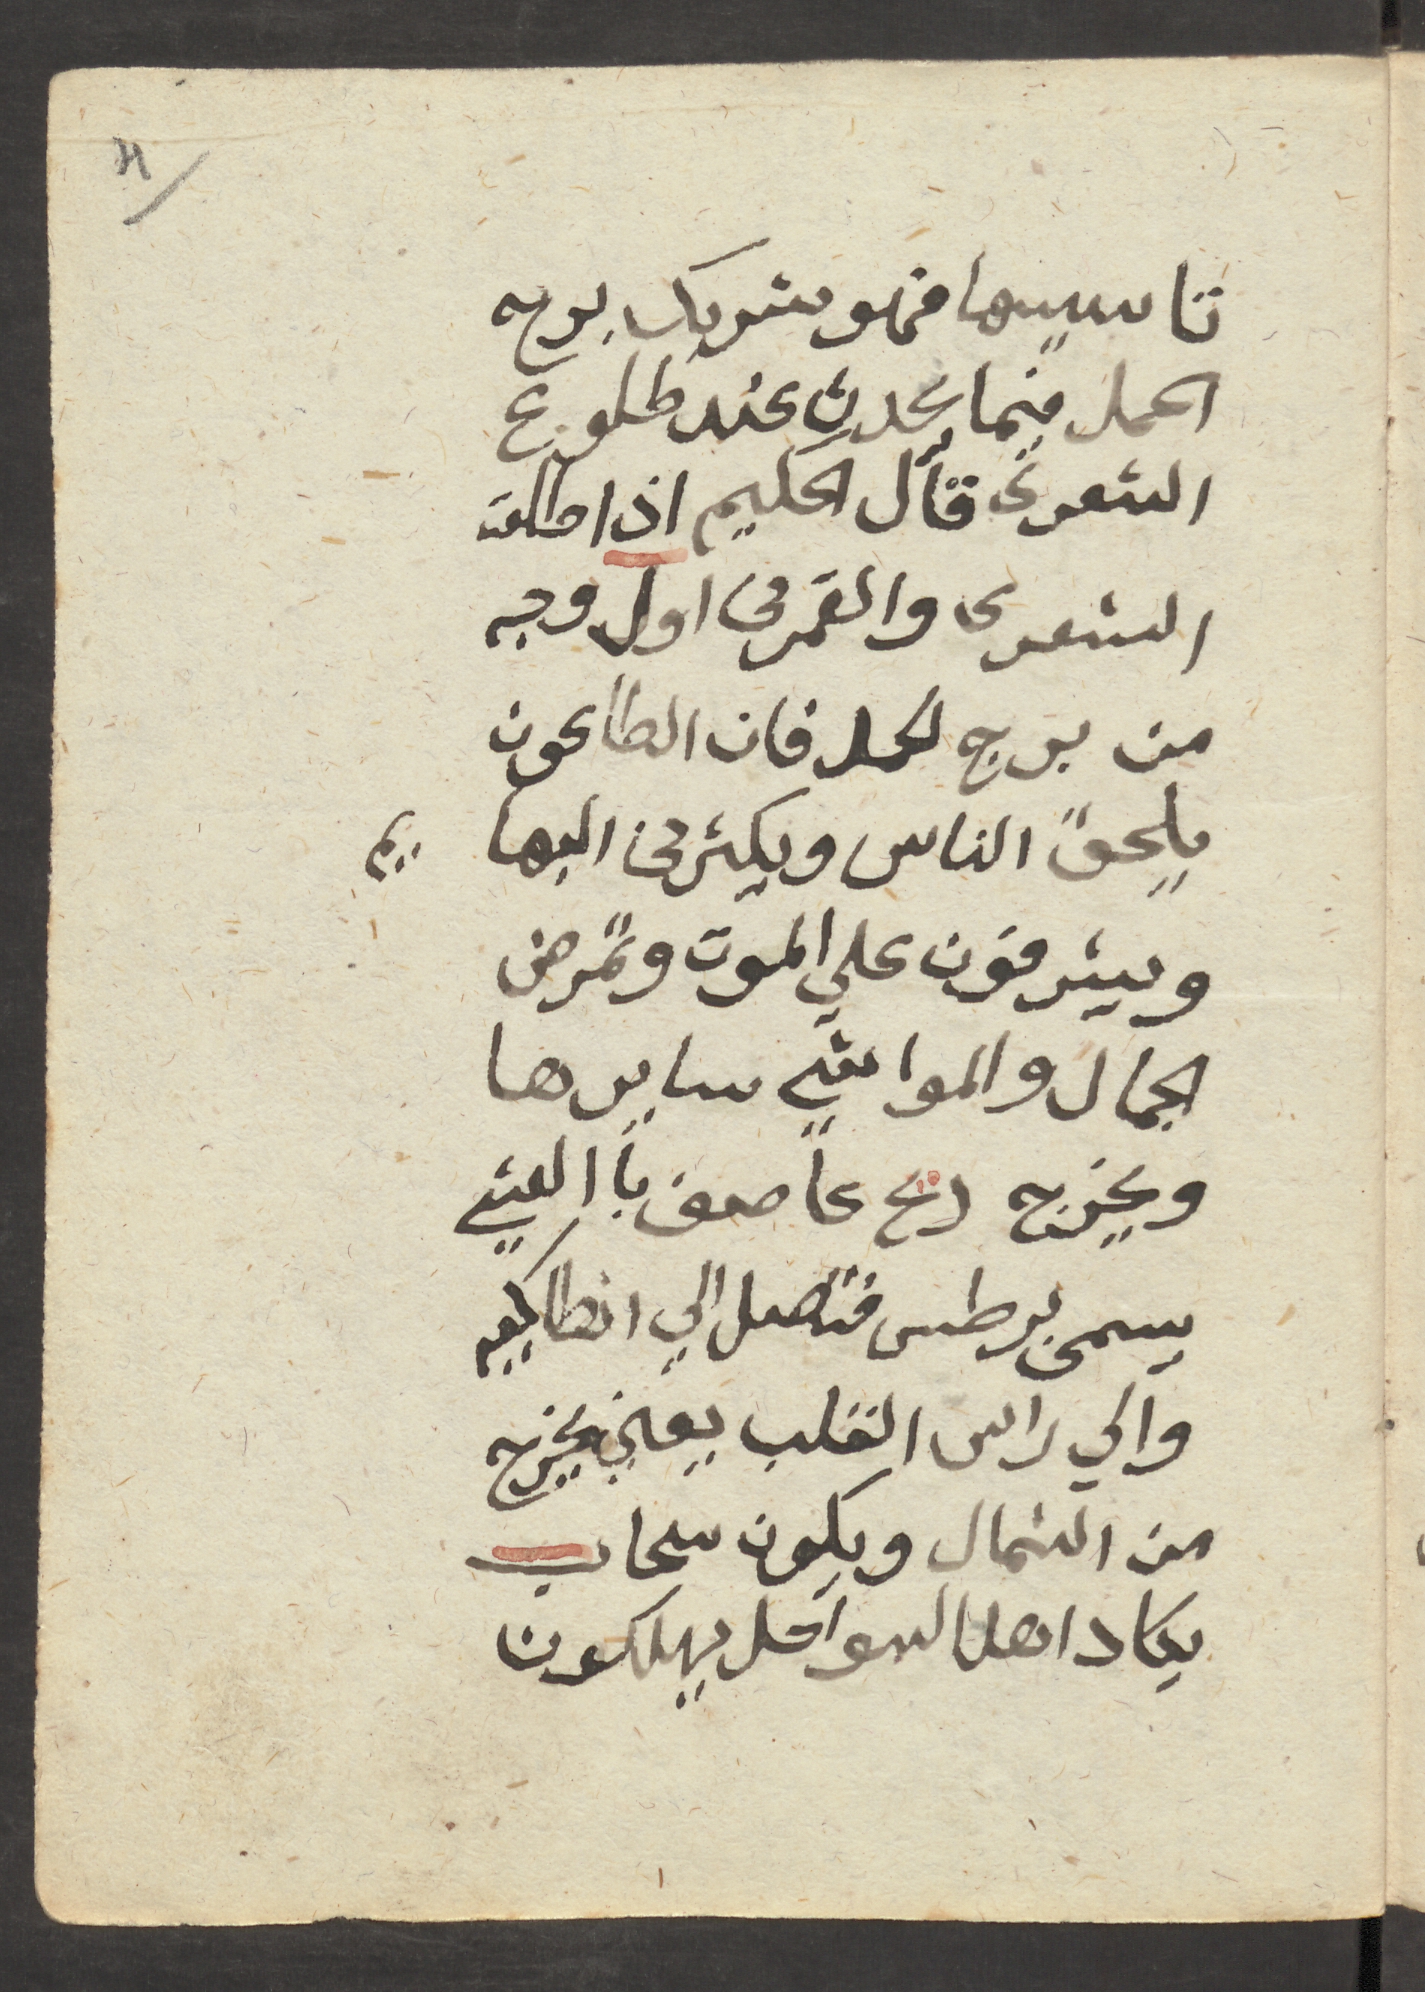 تاسيسها فهو شريك برج
الحمل فيما يحدث عند طلوع
الشعرى قال الحكيم اذا طلعت
الشعرى والقمر فى اول وجه
من برج الحمل فان الطاعون
يلحق الناس ويكثر فى البهايم
ويشرفون علي الموت وتمرض
الجمال والمواشي سايرها
ويخرج ريح عاصف باالعشي
يسمى برطس فتصل الي انطاكيه
والي راس القلب يعني يخرج
من الشمال ويكون سحاب
يكاد اهل السواحل يهلكون